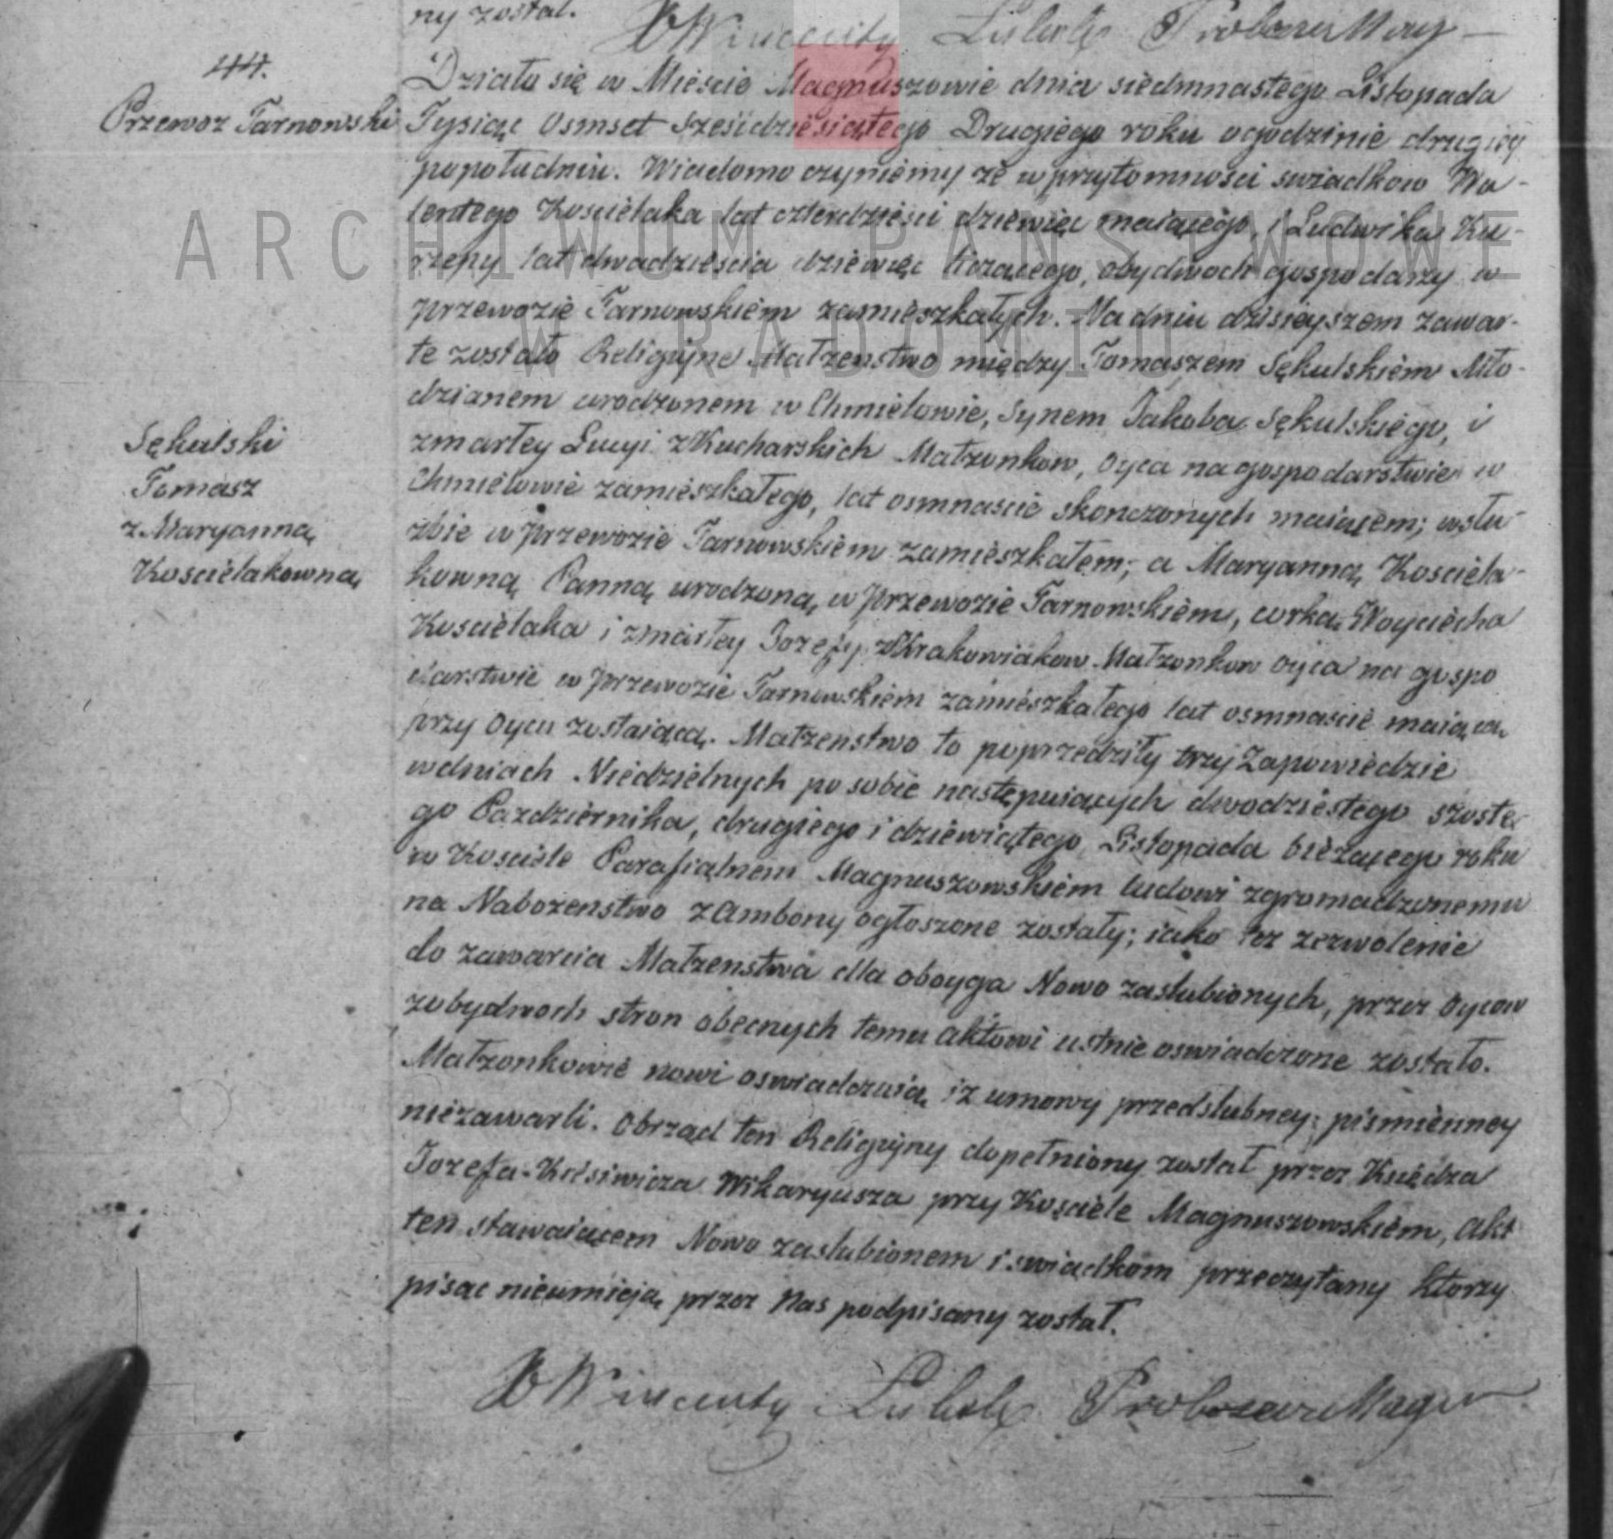 ny został.
X Wincenty Proboszcz Mag
44.
Przewoz Tarnowski
Działo się w Mieście Magnuszowie dnia siedmnastego Listopada
Tysiąc Osmset Sześćdziesiątego Drugiego roku ogodzinie drugiey
popołudniu. Wiadomo czyniemy ze w przytomnosci swiadkow Wa-
lentego Koscielaka lat czterdziesci dziewięc maiącego, i Ludwika Ku-
rzepy lat dwadziescia dziewięc liczącego, obydwoch gospodarzy w
Przewozie Tarnowskiem zamieszkałych. Na dniu dzisieyszem zawar-
te zostało Religijne Małzenstwo między Tomaszem Sękulskiem Mło-
dzianem urodzonem w Chmielowie, Synem Jakoba Sękulskiego, i
zmarłey Lucyi z Kucharskich Małzonkow, oyca na gospodarstwie w
Chmielowie zamieszkałego, lat osmnascie skonczonych maiącem; wsłu-
zbie w Przewozie Tarnowskiem zamieszkałem; a Maryanną Kosciela-
kowną Panną urodzoną w Przewozie Tarnowskiem, corką Woyciecha
Koscielaka i zmarłey Jozefy z Krakowiakow Małzonkow oyca na gospo
darstwie w Przewozie Tarnowskiem zamieszkałego lat osmnascie maiącą
przy Oycu zostaiącą. Małzenstwo to poprzedziły trzy Zapowiedzie
wdniach Niedzielnych po sobie następuiących dwodziestego szoste-
go Pazdziernika, drugiego i dziewiątego Listopada biezącego roku
w Kosciele Parafialnem Magnuszowskiem ludowi zgromadzonemu
na Nabozenstwo z Ambony ogłoszone zostały; iako tez zezwolenie
do zawarcia Małzenstwa dla oboyga Nowo zaslubionych, przez Oycow
zobydwoch stron obecnych temu aktowi ustnie oswiadczone zostało.
Małzonkowie nowi oswiadczaią iz umowy przedslubney pismienney
niezawarli. Obrząd ten Religijny dopełniony został przez Xiędza
Jozefa Wikaryusza przy Kosciele Magnuszowskiem, Akt
ten stawaiącem Nowo zaslubionem i swiadkom przeczytany ktorzy
pisac nieumieją przez Nas podpisany został.
X Wincenty Proboszcz Mag
Sękulski
Tomasz
z Maryanną
Koscielakowną
ARCHIWUM PAŃSTWOWE
W RADOMIU